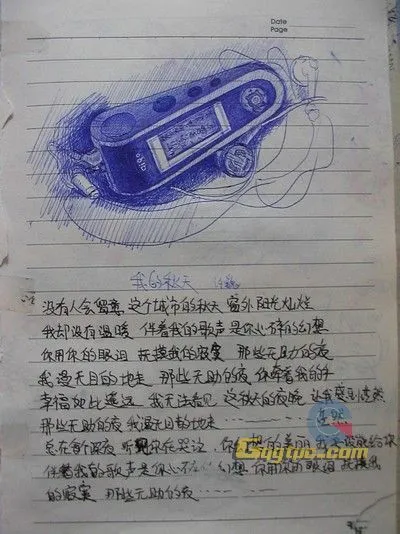 Date
Page
我的秋天 许巍
没有人会留意 这个城市的秋天 窗外阳光灿烂
我却没有温暖 伴着我的歌声 是你心碎的幻想
你用你的眼泪 抚摸我的寂寞 那些无助的夜
我漫无目的地走 那些无助的夜 你牵着我的手
幸福如此遥远 我无法看见 这秋天的夜晚 让我感到茫然
那些无助的夜 我漫无目的地走 茫然
总在每个深夜 听见你在哭泣 你 的美丽 我 给你
伴着我的歌声 是你心 幻想 你用你的眼泪 抚摸我
的寂寞 那些无助的夜
Gqgtpc.com